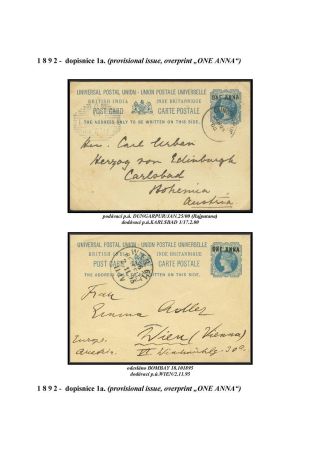 1 8 9 2 - dopisnice 1a. (provisional issue, overprint „ONE ANNA“)
UNIVERSAL POSTAL UNION - UNION POSTALE UNIVERSELLE
BRITISH INDIA INDE BRITANNIQUE
ONE ANNA
POST CARD CARTE POSTALE
THE ADDRESS ONLY TO BE WRITTEN ON THIS SIDE
Carl Urban
Herzog von Edinburgh
Carlsbad
Bohemia
Austria
podávací p.ú. DUNGARPUR/JAN.25/00 (Rajputana)
dodávací p.ú.KARLSBAD 1/17.2.00
UNIVERSAL POSTAL UNION UNION POSTALE UNIVERSELLE
BRITISH INDIA INDE BRITANNIQUE
ONE ANNA
POST CARD CARTE POSTALE
THE ADDRESS ONLY TO BE WRITTEN ON THIS SIDE
Frau
Emma Adler
Wien (Vienna)
odesláno BOMBAY 18.101895
dodávací p.ú.WIEN/2.11.95
1 8 9 2 - dopisnice 1a. (provisional issue, overprint „ONE ANNA“)